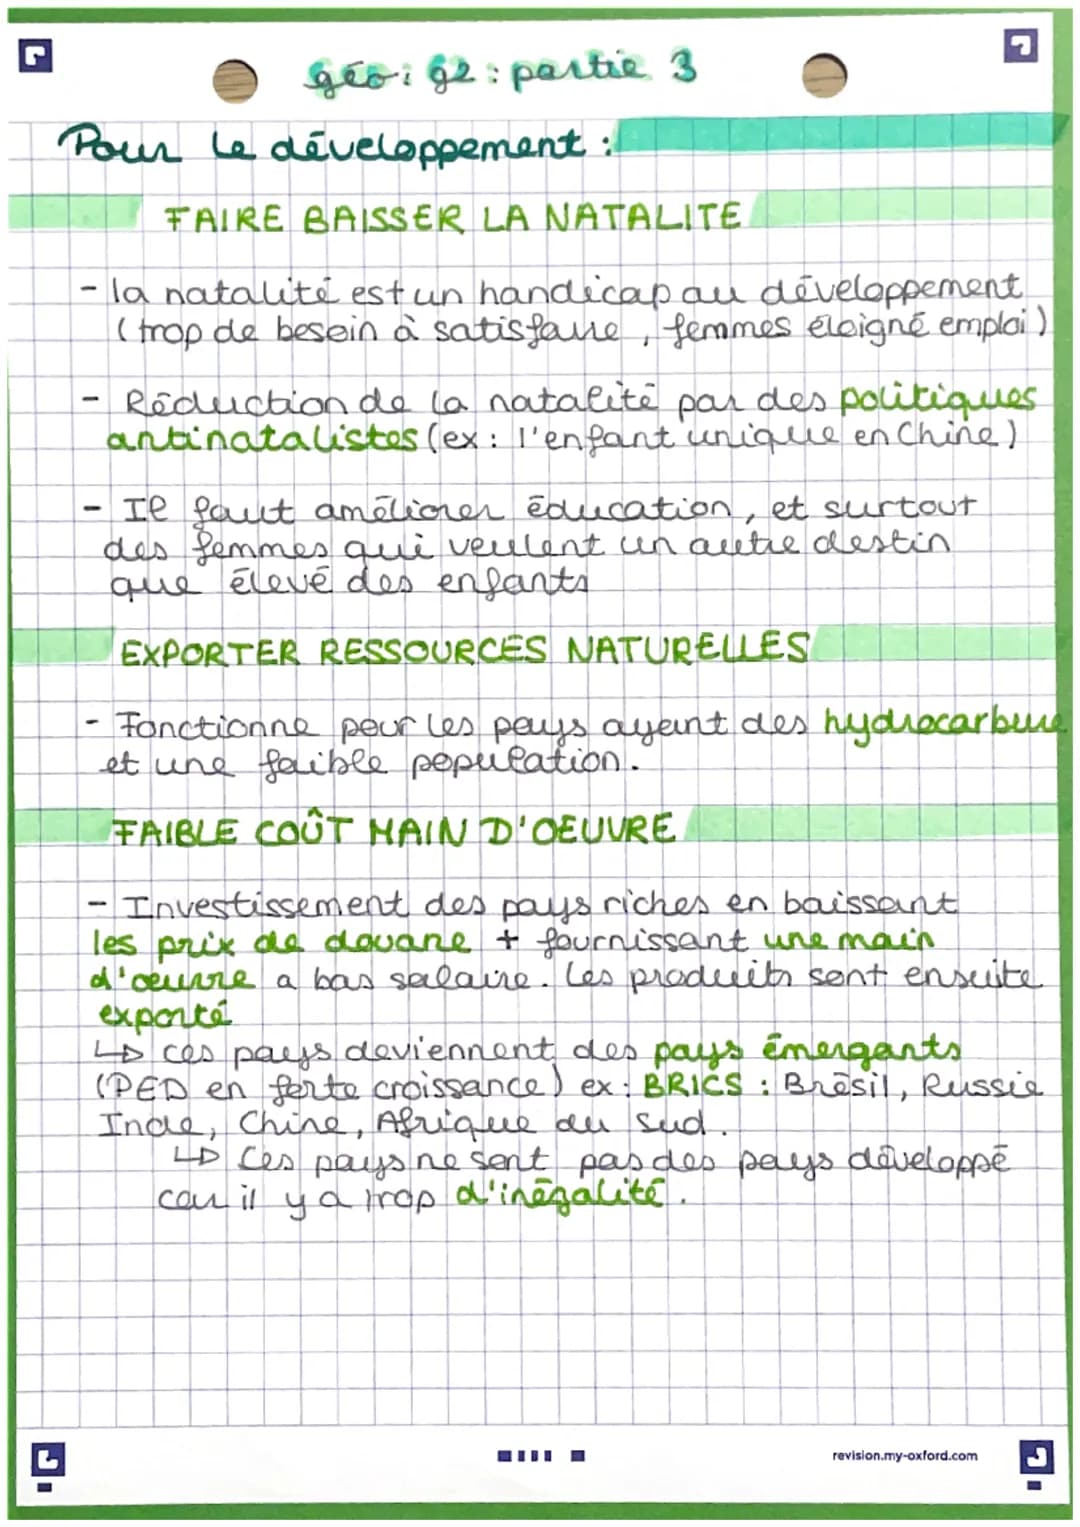 géo: g2: partie 3
Pour le développement :
FAIRE BAISSER LA NATALITE
- la natalité est un handicap au développement
( trop de besoin à satisfaire, femmes éloigné emploi )
- Réduction de la natalité par des politiques
antinatalistes (ex : l'enfant unique en Chine)
- Il faut améliorer éducation, et surtout
des femmes qui veulent un autre destin
que élevé des enfants
EXPORTER RESSOURCES NATURELLES
- Fonctionne pour les pays ayant des hydrocarbure
et une faible population.
FAIBLE COÛT MAIN D'OEUVRE
- Investissement des pays riches en baissant
les prix de douane + fournissant une main
d'œuvre a bas salaire. Les produits sont ensuite
exporté
↳ ces pays deviennent des pays émergants
(PED en forte croissance) ex : BRICS : Brésil, Russie
Inde, Chine, Afrique du Sud.
↳ Ces pays ne sont pas des pays développé
car il y a trop d'inégalité.
revision.my-oxford.com